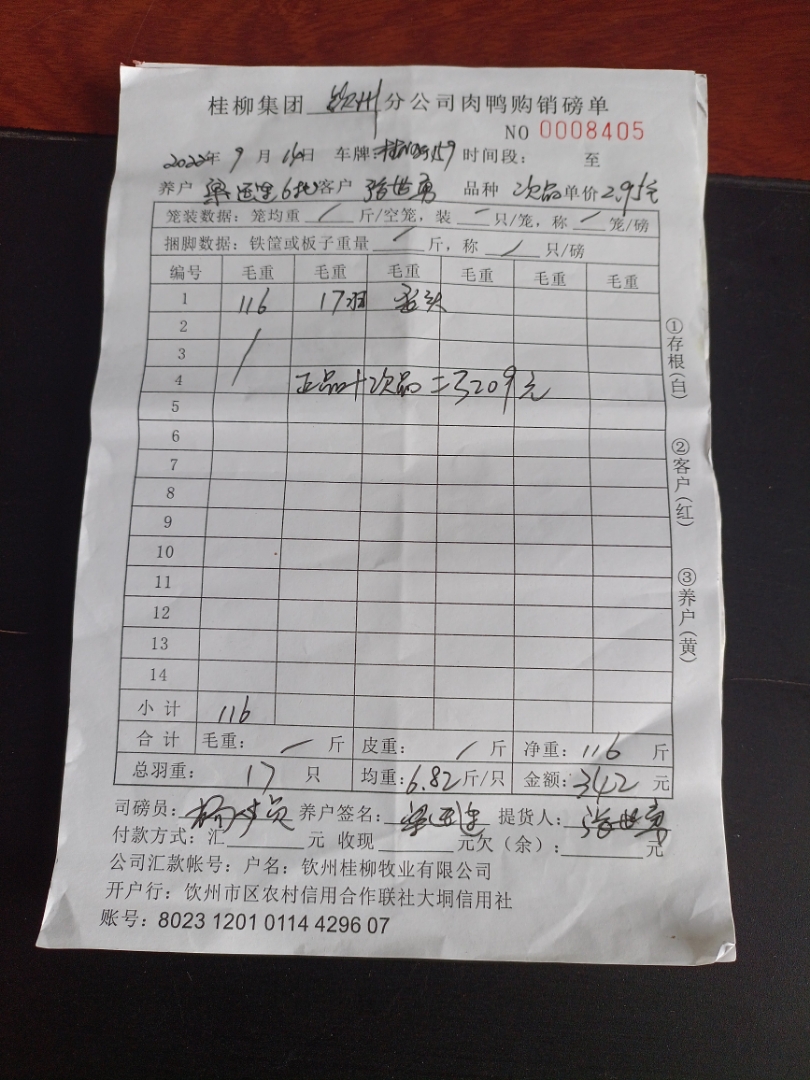 桂柳集团 钦州 分公司肉鸭购销磅单
NO 0008405
2022年 9 月 14日 车牌: 时间段: 至
养户 6批 客户 张世勇 品种 次品 单价 2.95元
笼装数据: 笼均重 / 斤/空笼, 装 / 只/笼, 称 / 笼/磅
捆脚数据: 铁筐或板子重量 / 斤, 称 / 只/磅
编号 毛重 毛重 毛重 毛重 毛重 毛重
1 116 17羽
2
3
4 正品+次品=3209元
5
6
7
8
9
10
11
12
13
14
小计 116
合计 毛重: / 斤 皮重: / 斤 净重: 116 斤
总羽重: 17 只 均重: 6.82 斤/只 金额: 342 元
司磅员: 养户签名: 提货人: 张世勇
付款方式: 汇 元 收现 元欠(余): 元
公司汇款帐号: 户名: 钦州桂柳牧业有限公司
开户行: 钦州市区农村信用合作联社大垌信用社
账号: 8023 1201 0114 4296 07
①存根(白)
②客户(红)
③养户(黄)